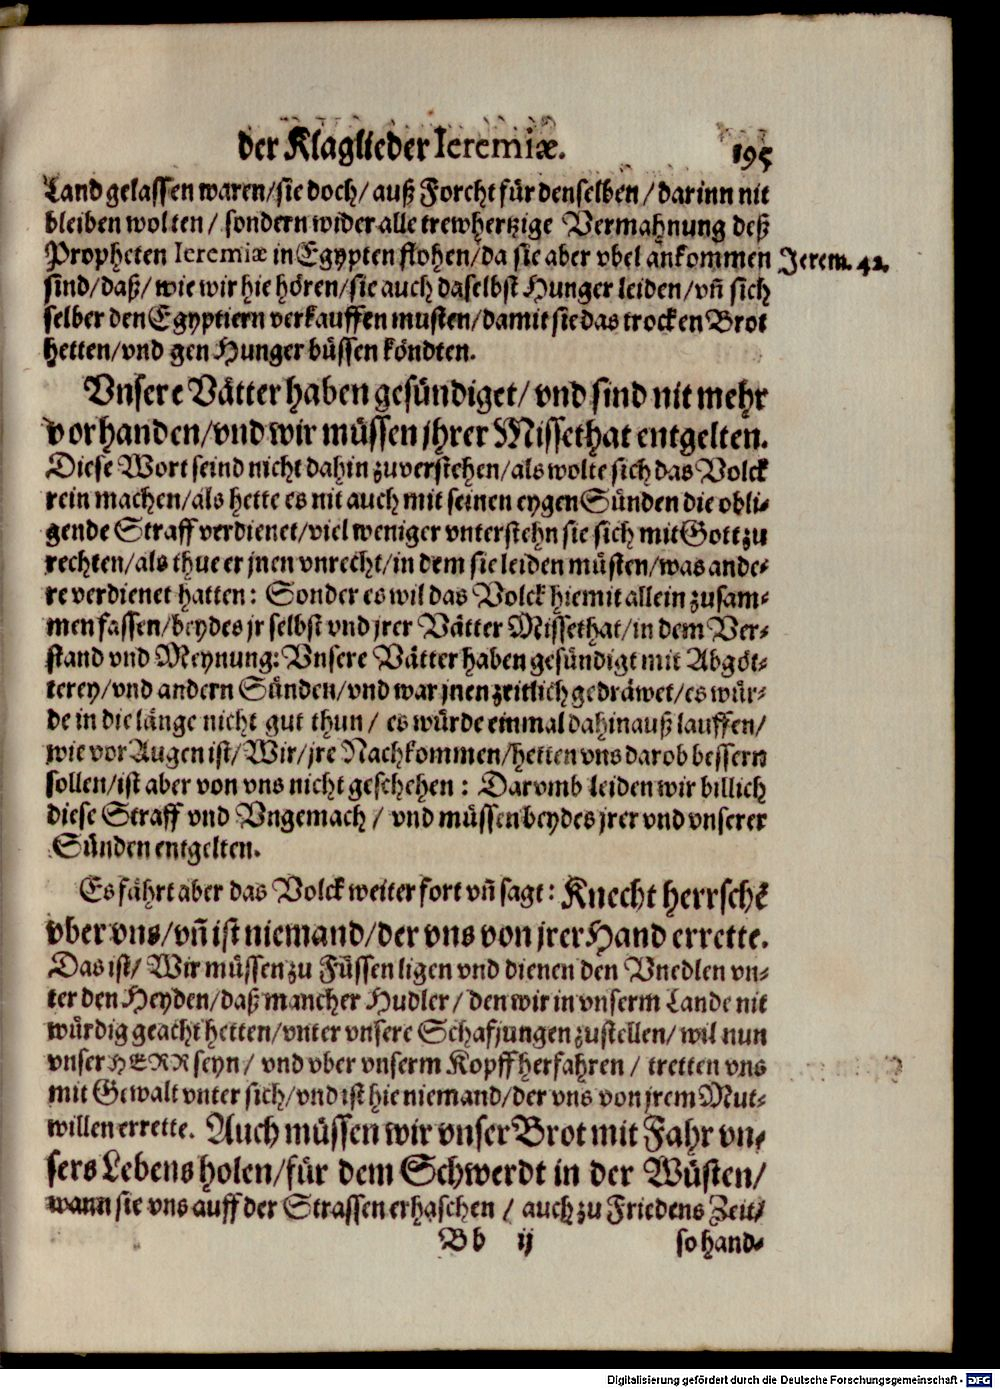 der Klaglieder Ieremiæ. 195
Land gelassen waren/sie doch/ auß Forcht für denselben/darinn nit
bleiben wolten/ sondern wider alle trewhertzige Vermahnung deß
Propheten Ieremiæ in Egypten flohen/da sie aber vbel ankommen
Jerem. 42.
sind/daß/ wie wir hie hören/sie auch daselbst Hunger leiden/vñ sich
selber den Egyptiern verkauffen musten/damit sie das trocken Brot
hetten/vnd gen Hunger büssen köndten.
Vnsere Vätter haben gesündiget/ vnd sind nit mehr
vorhanden/vnd wir müssen jhrer Missethat entgelten.
Diese Wort seind nicht dahin zuverstehen/als wolte sich das Volck
rein machen/als hette es nit auch mit seinen eygen Sünden die obli-
gende Straff verdienet/viel weniger vnterstehn sie sich mit Gott zu
rechten/als thue er jnen vnrecht/in dem sie leiden müsten/was ande-
re verdienet hatten: Sonder es wil das Volck hiemit allein zusam-
men fassen/beydes jr selbst vnd jrer Vätter Missethat/in dem Ver-
stand vnd Meynung: Vnsere Vätter haben gesündigt mit Abgöt-
terey/vnd andern Sünden/vnd war jnen zeitlich gedräwet/es wür-
de in die länge nicht gut thun/ es würde einmal dahinauß lauffen/
wie vor Augen ist/Wir/jre Nachkommen/hetten vns darob bessern
sollen/ist aber von vns nicht geschehen: Darvmb leiden wir billich
diese Straff vnd Vngemach/ vnd müssen beydes jrer vnd vnserer
Sünden entgelten.
Es fährt aber das Volck weiter fort vñ sagt: Knecht herrschẽ
vber vns/vñ ist niemand/der vns von jrer Hand errette.
Das ist/ Wir müssen zu Füssen ligen vnd dienen den Vnedlen vn-
ter den Heyden/daß mancher Hudler/den wir in vnserm Lande nit
würdig geacht hetten/vnter vnsere Schafjungen zustellen/wil nun
vnser HERR seyn/ vnd vber vnserm Kopff herfahren/ tretten vns
mit Gewalt vnter sich/vnd ist hie niemand/der vns von jrem Mut-
willen errette. Auch müssen wir vnser Brot mit Fahr vn-
sers Lebens holen/für dem Schwerdt in der Wüsten/
wann sie vns auff der Strassen erhaschen/ auch zu Friedens Zeit/
Bb ij so hand-
Digitalisierung gefördert durch die Deutsche Forschungsgemeinschaft - DFG